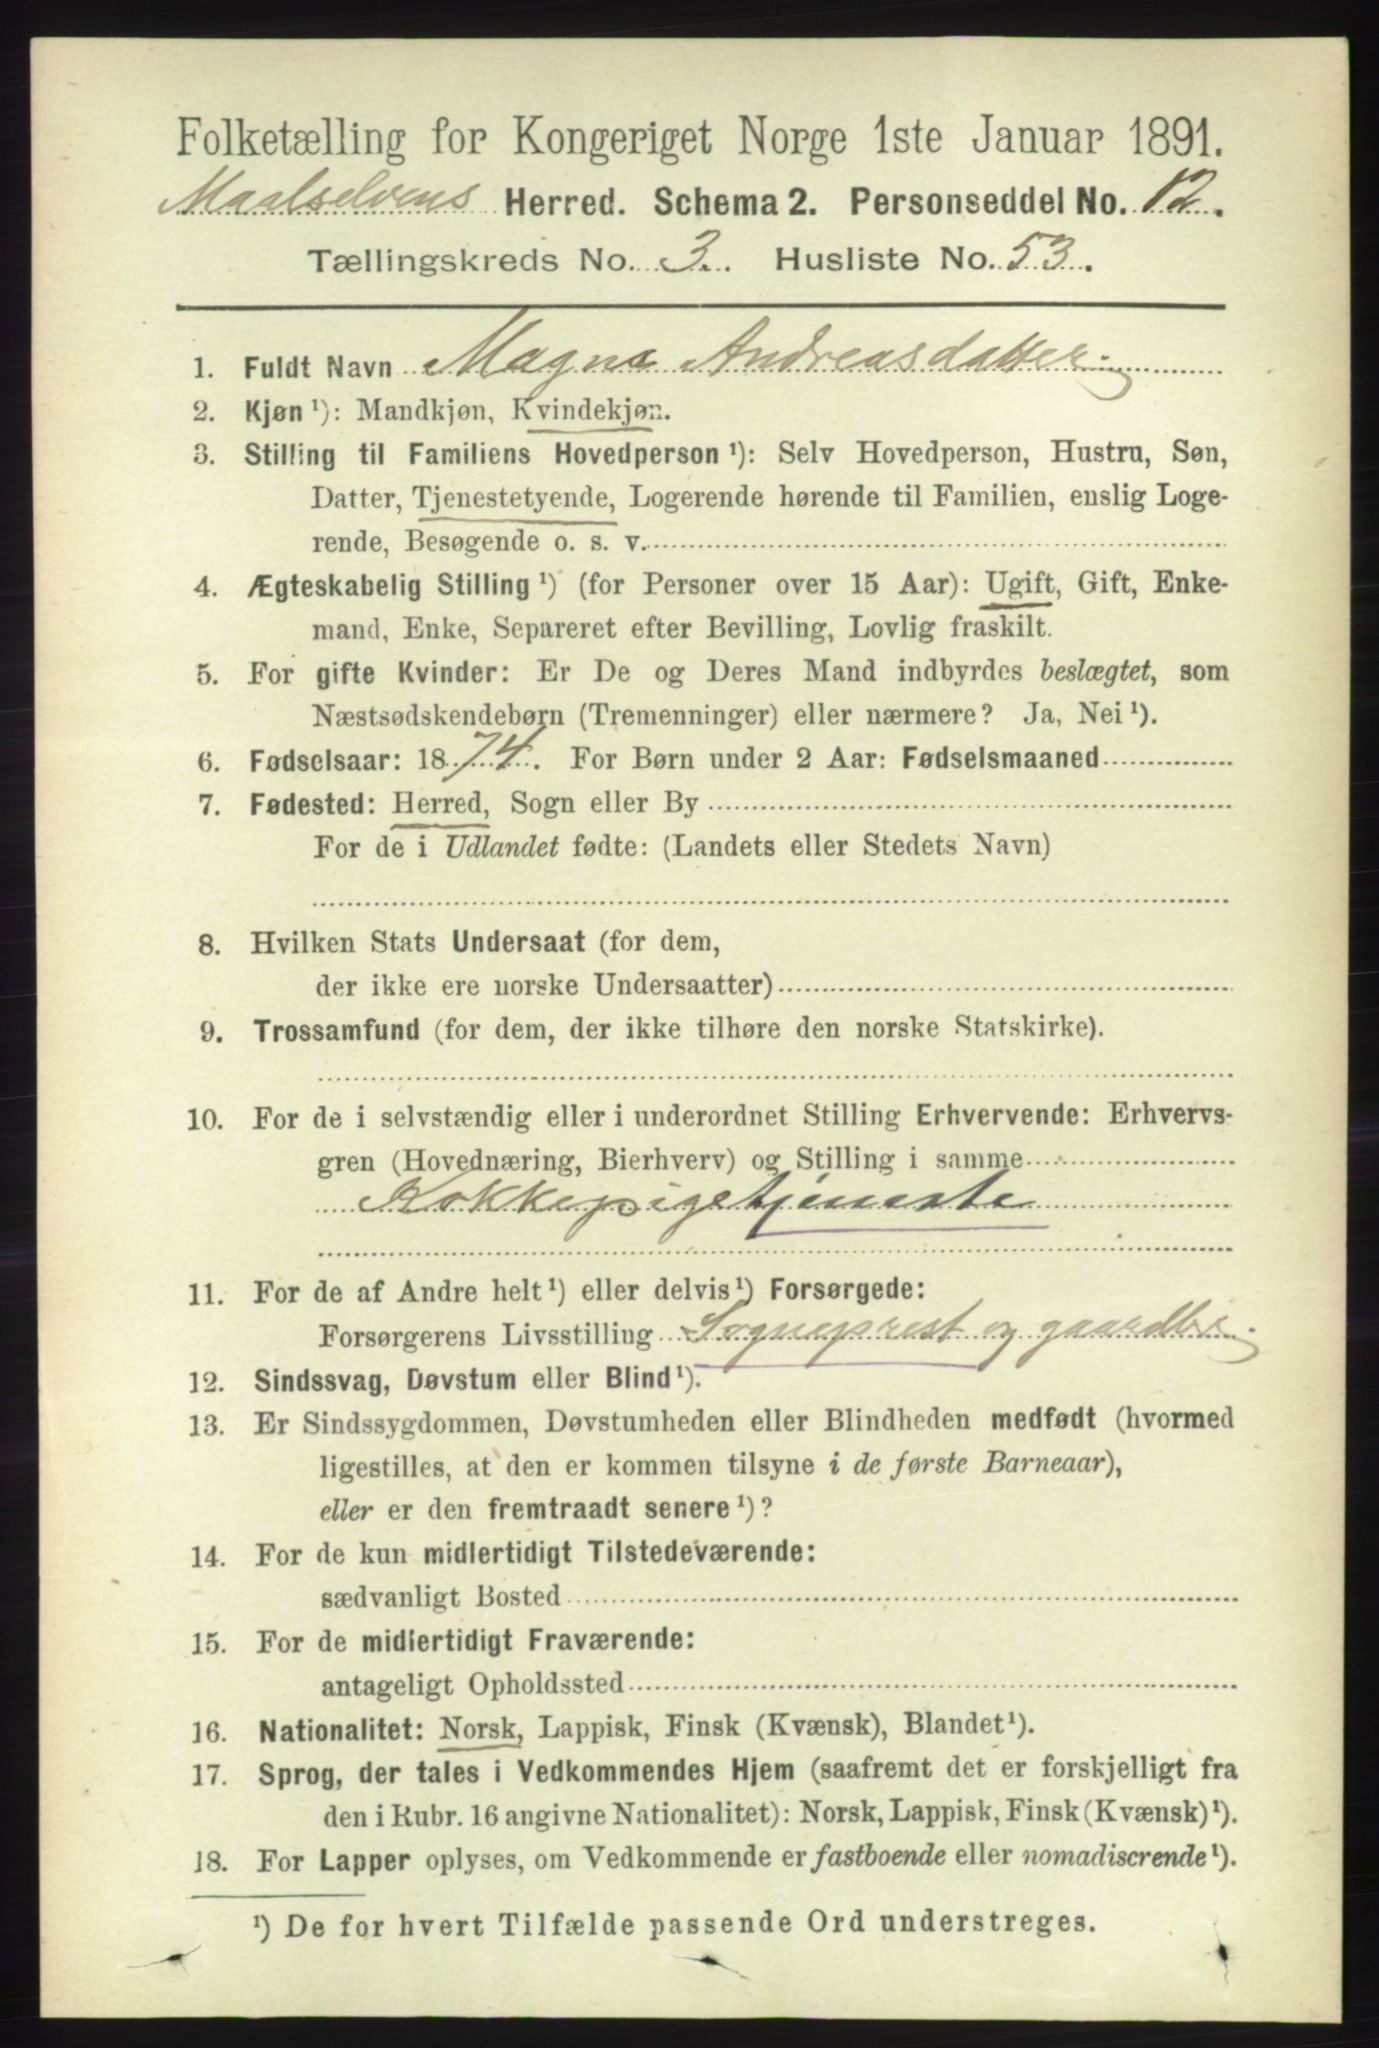 Folketælling for Kongeriget Norge 1ste Januar 1891.
Maalselvens Herred. Schema 2. Personseddel No. 12.
Tællingskreds No. 3. Husliste No. 53.
1. Fuldt Navn Magna Andreasdatter.
2. Kjøn ¹): Mandkjøn, Kvindekjøn.
3. Stilling til Familiens Hovedperson ¹): Selv Hovedperson, Hustru, Søn,
Datter, Tjenestetyende, Logerende hørende til Familien, enslig Loge-
rende, Besøgende o. s. v.
4. Ægteskabelig Stilling ¹) (for Personer over 15 Aar): Ugift, Gift, Enke-
mand, Enke, Separeret efter Bevilling, Lovlig fraskilt.
5. For gifte Kvinder: Er De og Deres Mand indbyrdes beslægtet, som
Næstsødskendebørn (Tremenninger) eller nærmere? Ja, Nei ¹).
6. Fødselsaar: 1874. For Børn under 2 Aar: Fødselsmaaned
7. Fødested: Herred, Sogn eller By
For de i Udlandet fødte: (Landets eller Stedets Navn)
8. Hvilken Stats Undersaat (for dem,
der ikke ere norske Undersaatter)
9. Trossamfund (for dem, der ikke tilhøre den norske Statskirke).
10. For de i selvstændig eller i underordnet Stilling Erhvervende: Erhvervs-
gren (Hovednæring, Bierhverv) og Stilling i samme
Kokkepigetjeneste
11. For de af Andre helt ¹) eller delvis ¹) Forsørgede:
Forsørgerens Livsstilling Sogneprest og gaardbr.
12. Sindssvag, Døvstum eller Blind ¹).
13. Er Sindssygdommen, Døvstumheden eller Blindheden medfødt (hvormed
ligestilles, at den er kommen tilsyne i de første Barneaar),
eller er den fremtraadt senere ¹)?
14. For de kun midlertidigt Tilstedeværende:
sædvanligt Bosted
15. For de midlertidigt Fraværende:
antageligt Opholdssted
16. Nationalitet: Norsk, Lappisk, Finsk (Kvænsk), Blandet ¹).
17. Sprog, der tales i Vedkommendes Hjem (saafremt det er forskjelligt fra
den i Rubr. 16 angivne Nationalitet): Norsk, Lappisk, Finsk (Kvænsk) ¹).
18. For Lapper oplyses, om Vedkommende er fastboende eller nomadiserende ¹).
¹) De for hvert Tilfælde passende Ord understreges.